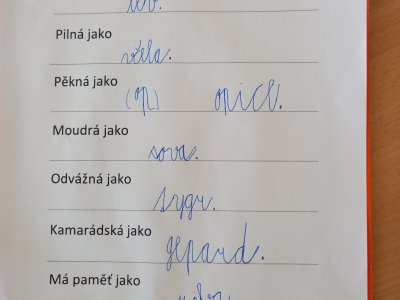 lev.
Pilná jako
včela.
Pěkná jako
(op) opice.
Moudrá jako
sova.
Odvážná jako
tygr.
Kamarádská jako
gepard.
Má paměť jako